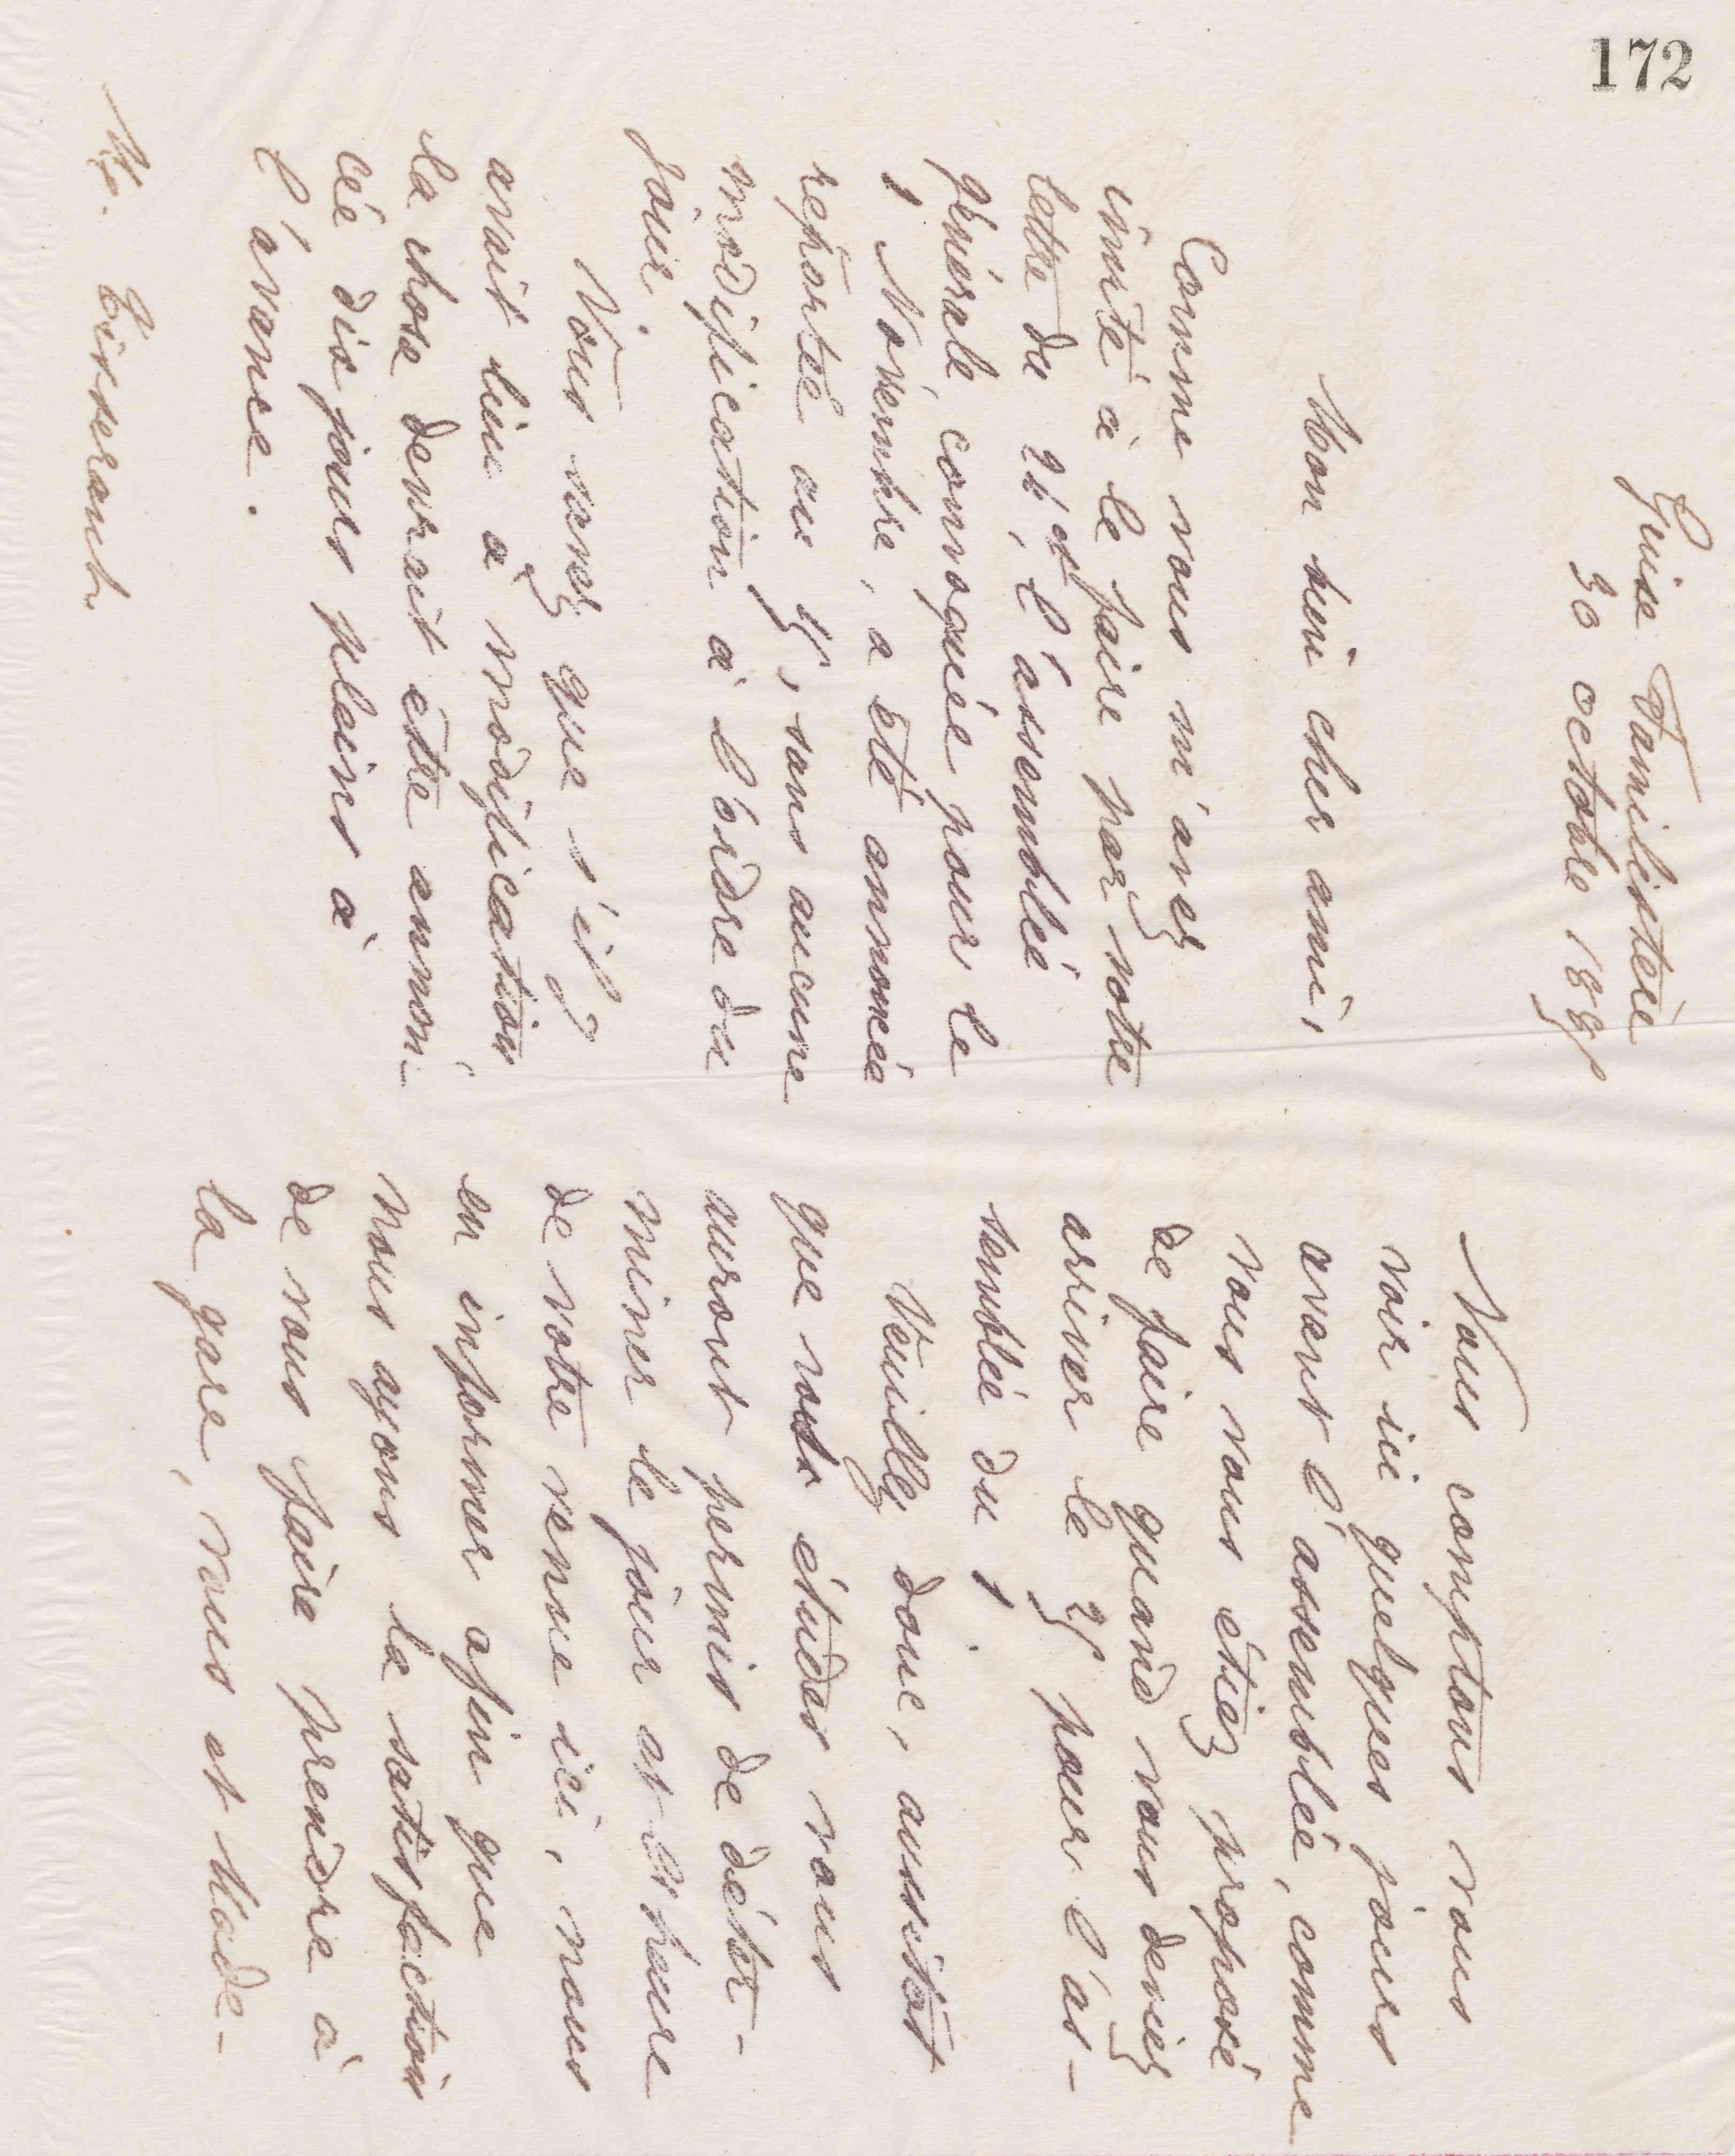 172
Guise Familistère
30 octobre 188
Mon bien cher ami,
Comme vous m'avez
invité à le faire par votre
lettre du 26 ct, l'assemblée
générale, convoquée pour le
1 Novembre, a été annoncée
reportée au 15, sans aucune
modification à l'ordre du
jour.
Vous savez que s'il y
avait lieu à modification
la chose devrait être annon-
cée dix jours pleins à
l'avance.
Mr. Tisserant
Nous comptons vous
voir ici quelques jours
avant l'assemblée, comme
vous vous étiez proposé
de faire quand vous deviez
arriver le 25 pour l'as-
semblée du 1
Veuillez donc, aussitôt
que vos études vous
auront permis de déter-
miner le jour et l'heure
de votre venue ici, nous
en informer afin que
nous ayons la satisfaction
de vous faire prendre à
la gare, vous et Made-